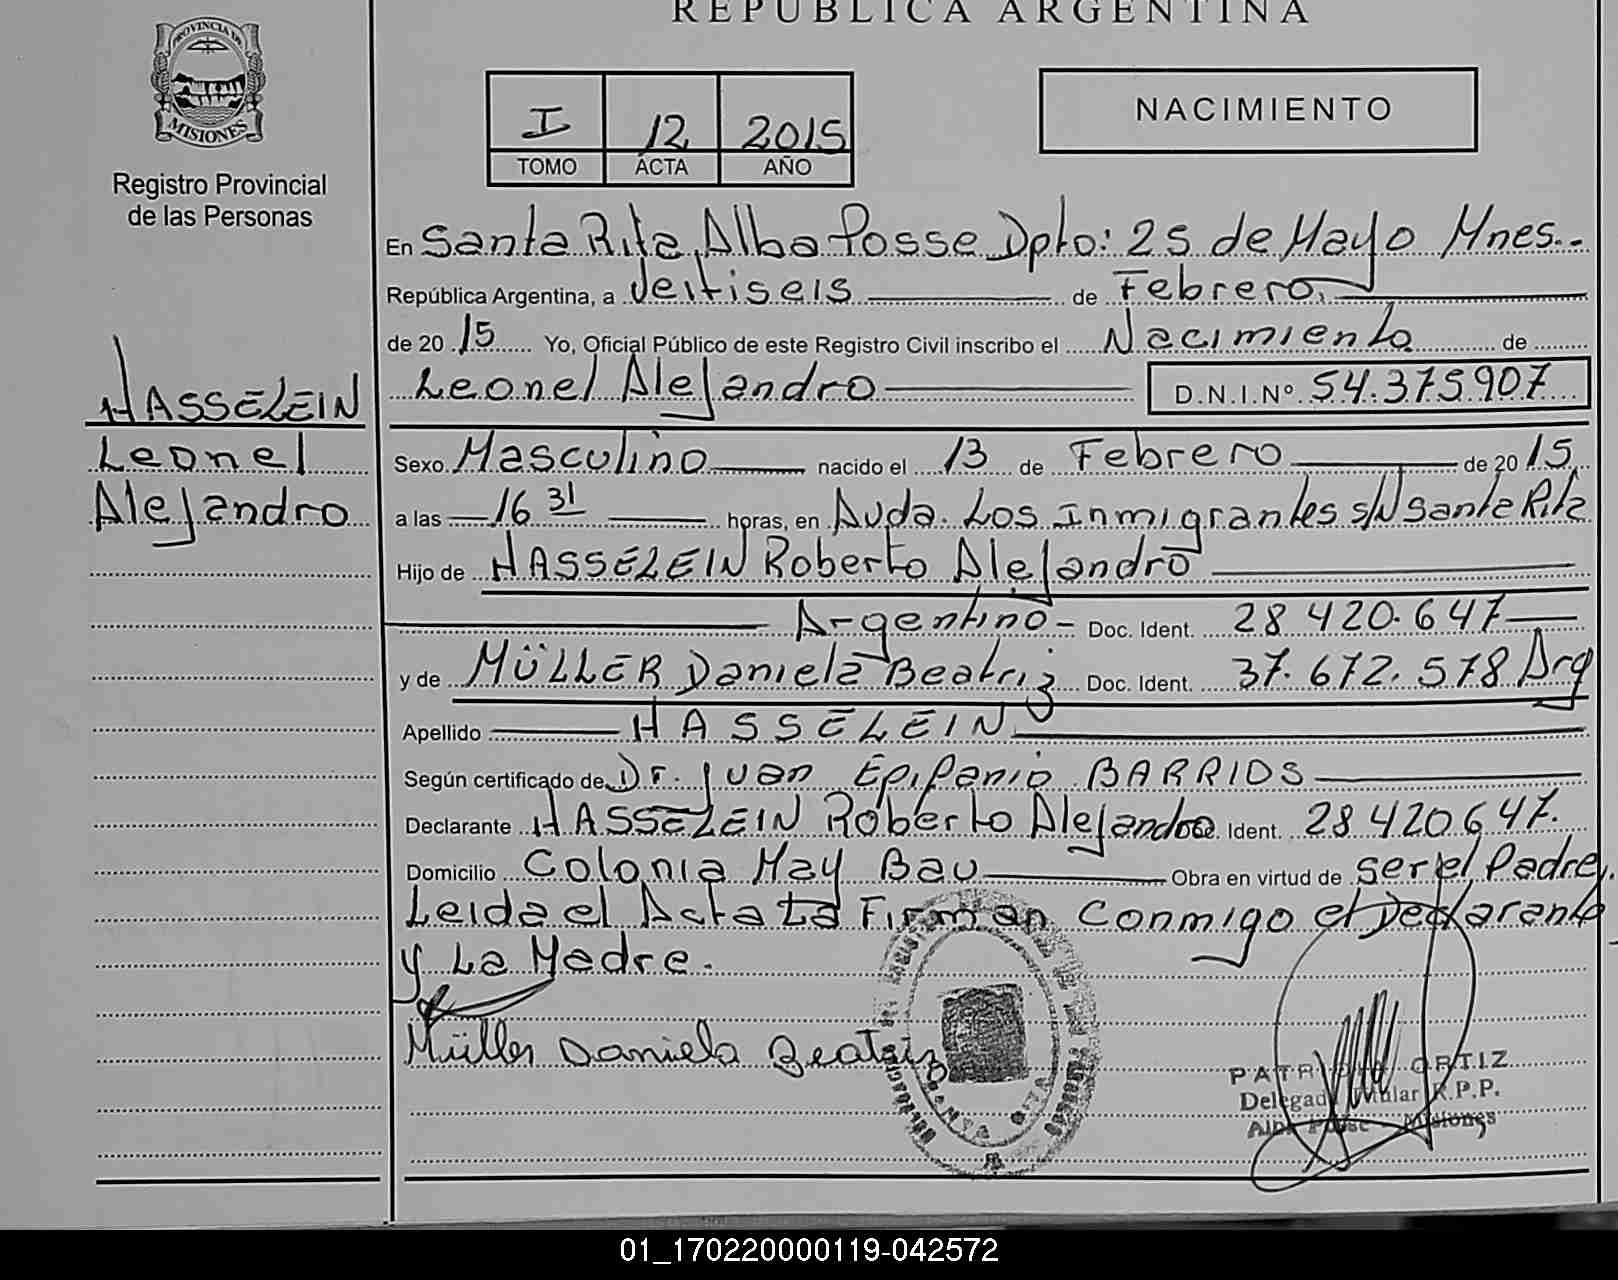 REPUBLICA ARGENTINA
PROVINCIA DE
MISIONES
Registro Provincial
de las Personas
I 12 2015
TOMO ACTA AÑO
NACIMIENTO
En Santa Rita, Alba Posse Dpto: 25 de Mayo Mnes.
República Argentina, a Veitiseis de Febrero,
de 20 15 Yo, Oficial Público de este Registro Civil inscribo el Nacimiento de
Leonel Alejandro D.N.I.Nº 54.375.907
HASSELEIN
Leonel
Alejandro
Sexo Masculino nacido el 13 de Febrero de 20 15,
a las 16 31 horas, en Avda. Los Inmigrantes s/N Santa Rita
Hijo de HASSELEIN Roberto Alejandro
Argentino - Doc. Ident. 28 420.647
y de MÜLLER Daniela Beatriz Doc. Ident. 37.672.578 Arg
Apellido HASSELEIN
Según certificado de Dr. Juan Epifanio BARRIOS
Declarante HASSELEIN Roberto Alejandro Doc. Ident. 28 420647.
Domicilio Colonia May Bau Obra en virtud de ser el Padre.
Leida el Acta La Firman Conmigo el Declarante
y La Madre.
Müller Daniela Beatriz
ORTIZ
Titular R.P.P.
Alba Posse - Misiones
01_170220000119-042572